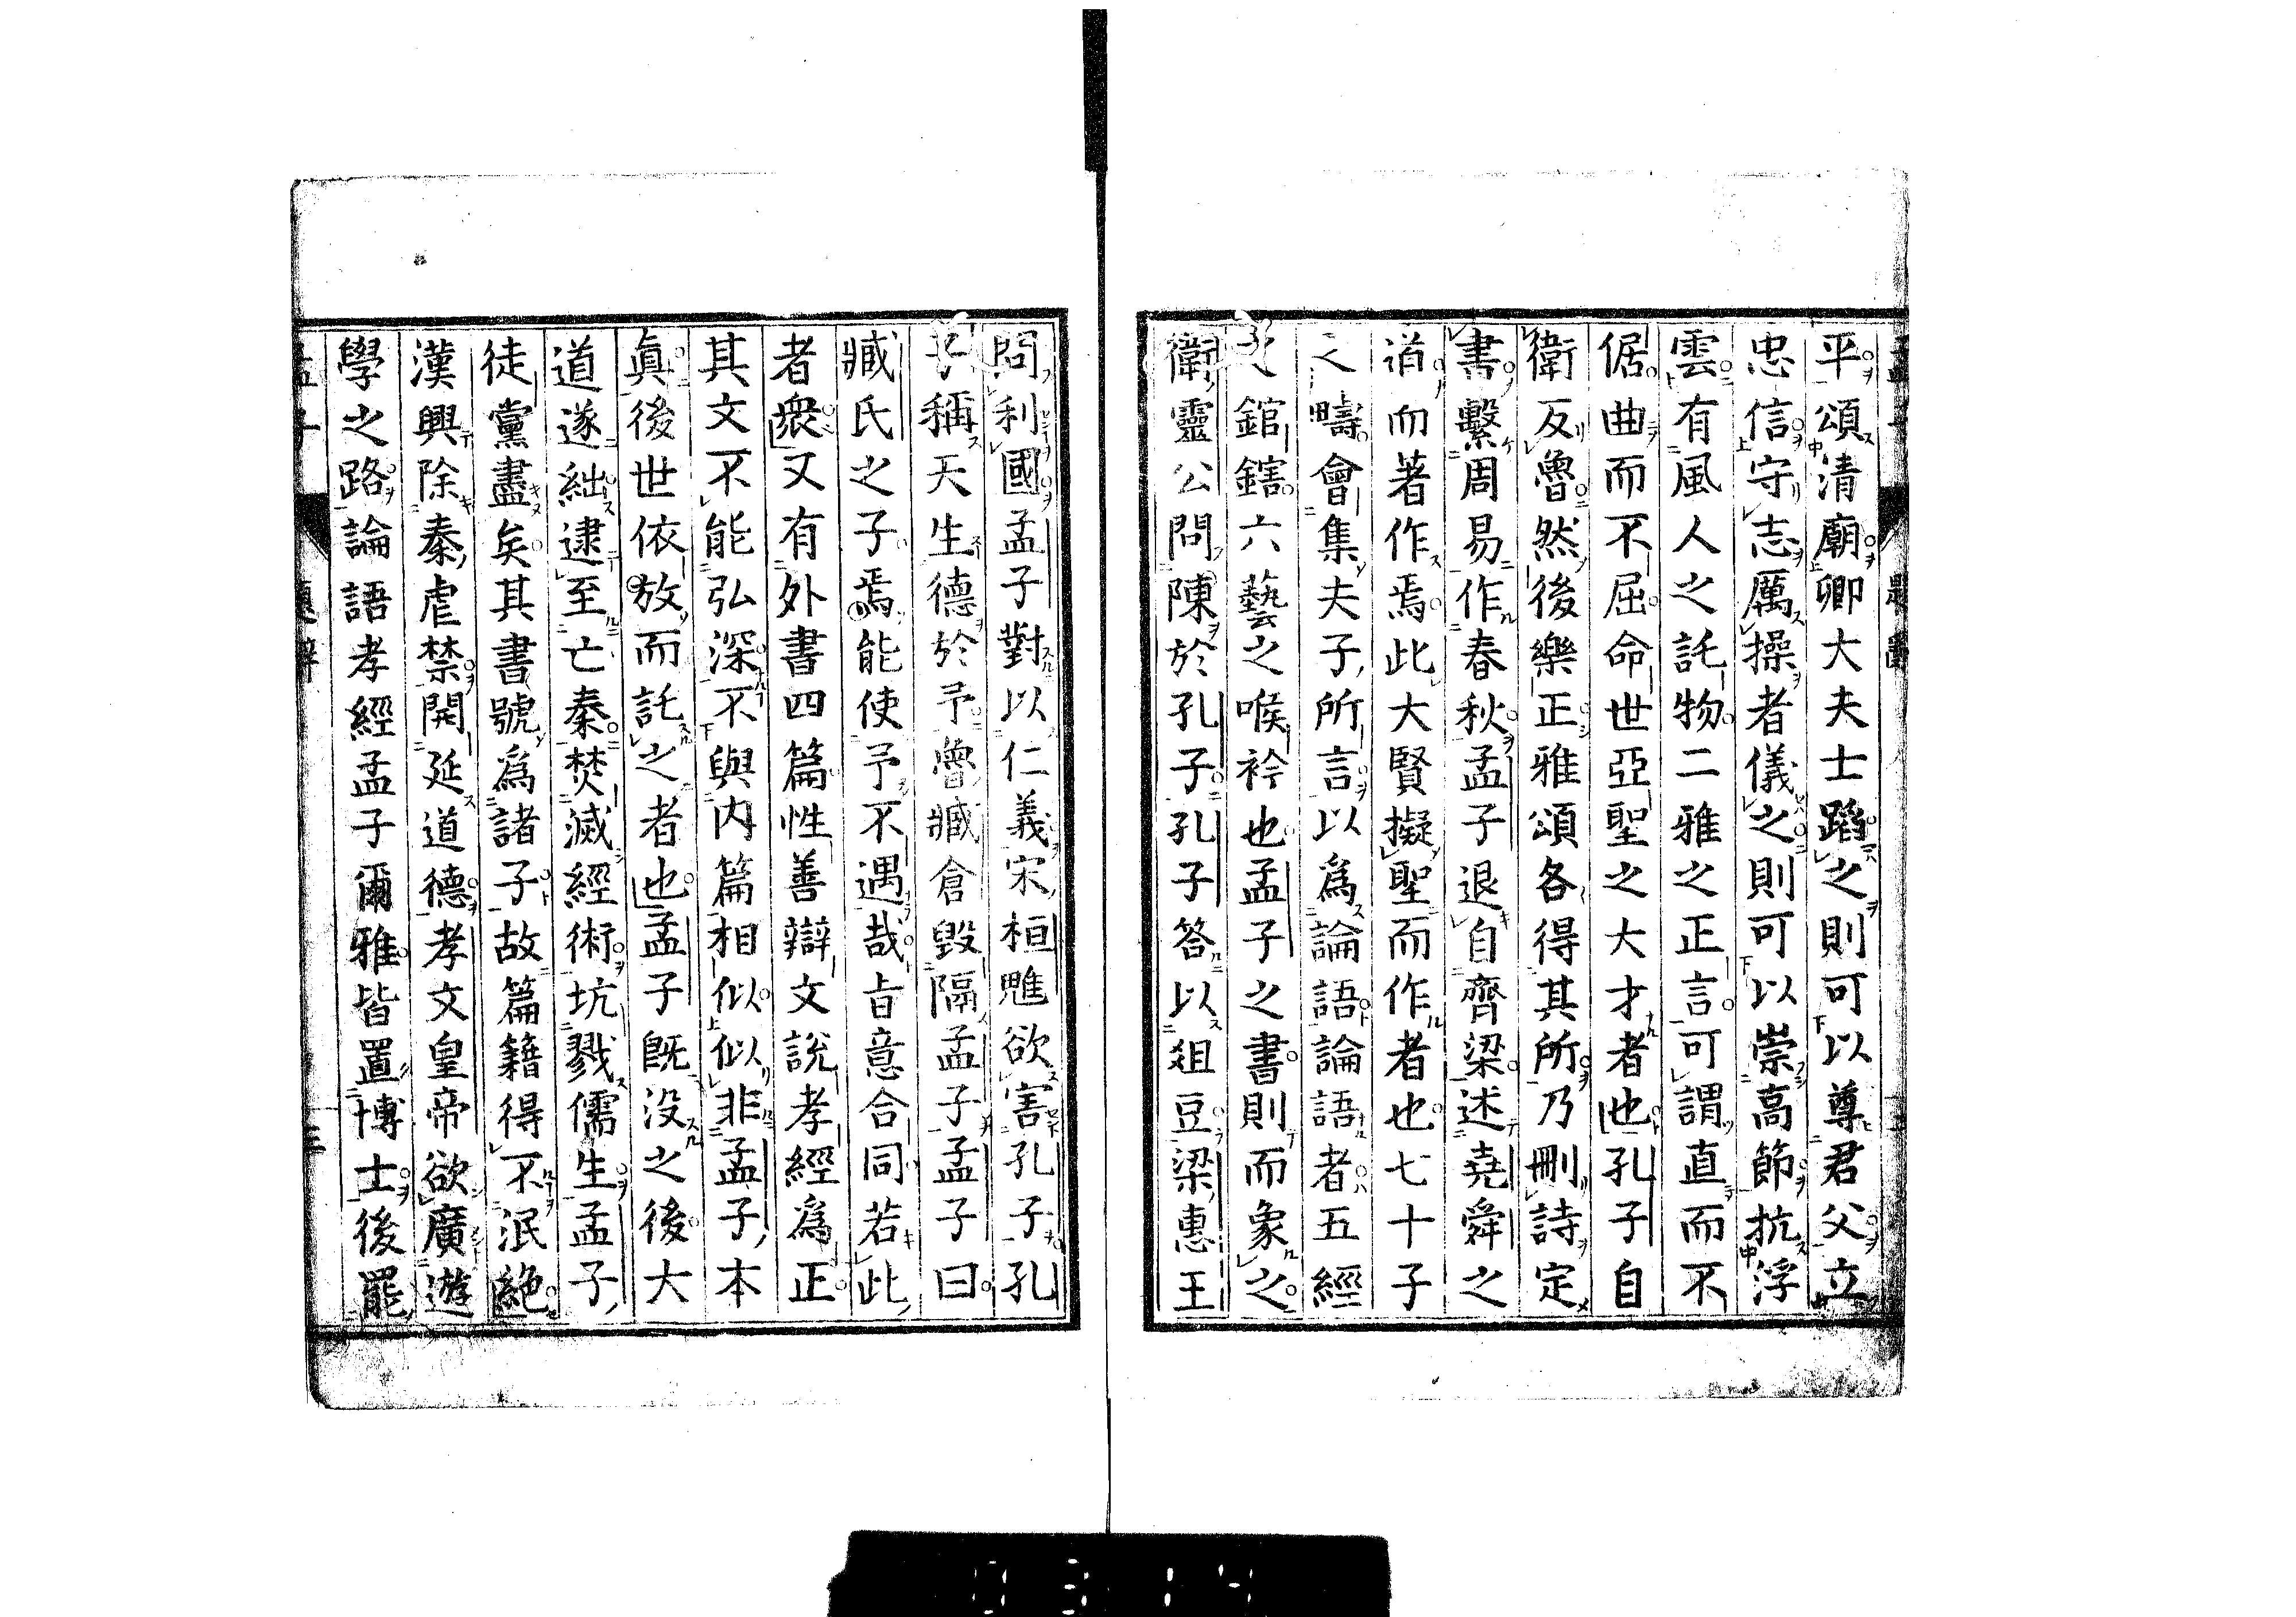 平頌清廟卿大夫士蹈之則可以尊君父立
忠信守志厲操者儀之則可以崇高節抗浮
雲有風人之託物二雅之正言可謂直而不
倨曲而不屈命世亞聖之大才者也孔子自
衛反魯然後樂正雅頌各得其所乃刪詩定
書繫周易作春秋孟子退自齊梁述堯舜之
道而著作焉此大賢擬聖而作者也七十子
之疇會集夫子所言以爲論語論語者五經
錧鎋六藝之喉衿也孟子之書則而象之
衛靈公問陳於孔子孔子答以俎豆梁惠王
問利國孟子對以仁義宋桓魋欲害孔子孔
子稱天生德於予魯臧倉毀隔孟子孟子曰
臧氏之子焉能使予不遇哉旨意合同若此
者衆又有外書四篇性善辯文說孝經爲正
其文不能弘深不與内篇相似似非孟子本
眞後世依放而託之者也孟子旣没之後大
道遂絀逮至亡秦焚滅經術坑戮儒生孟子
徒黨盡矣其書號爲諸子故篇籍得不泯絶
漢興除秦虐禁開延道德孝文皇帝欲廣遊
學之路論語孝經孟子爾雅皆置博士後罷
三
0314